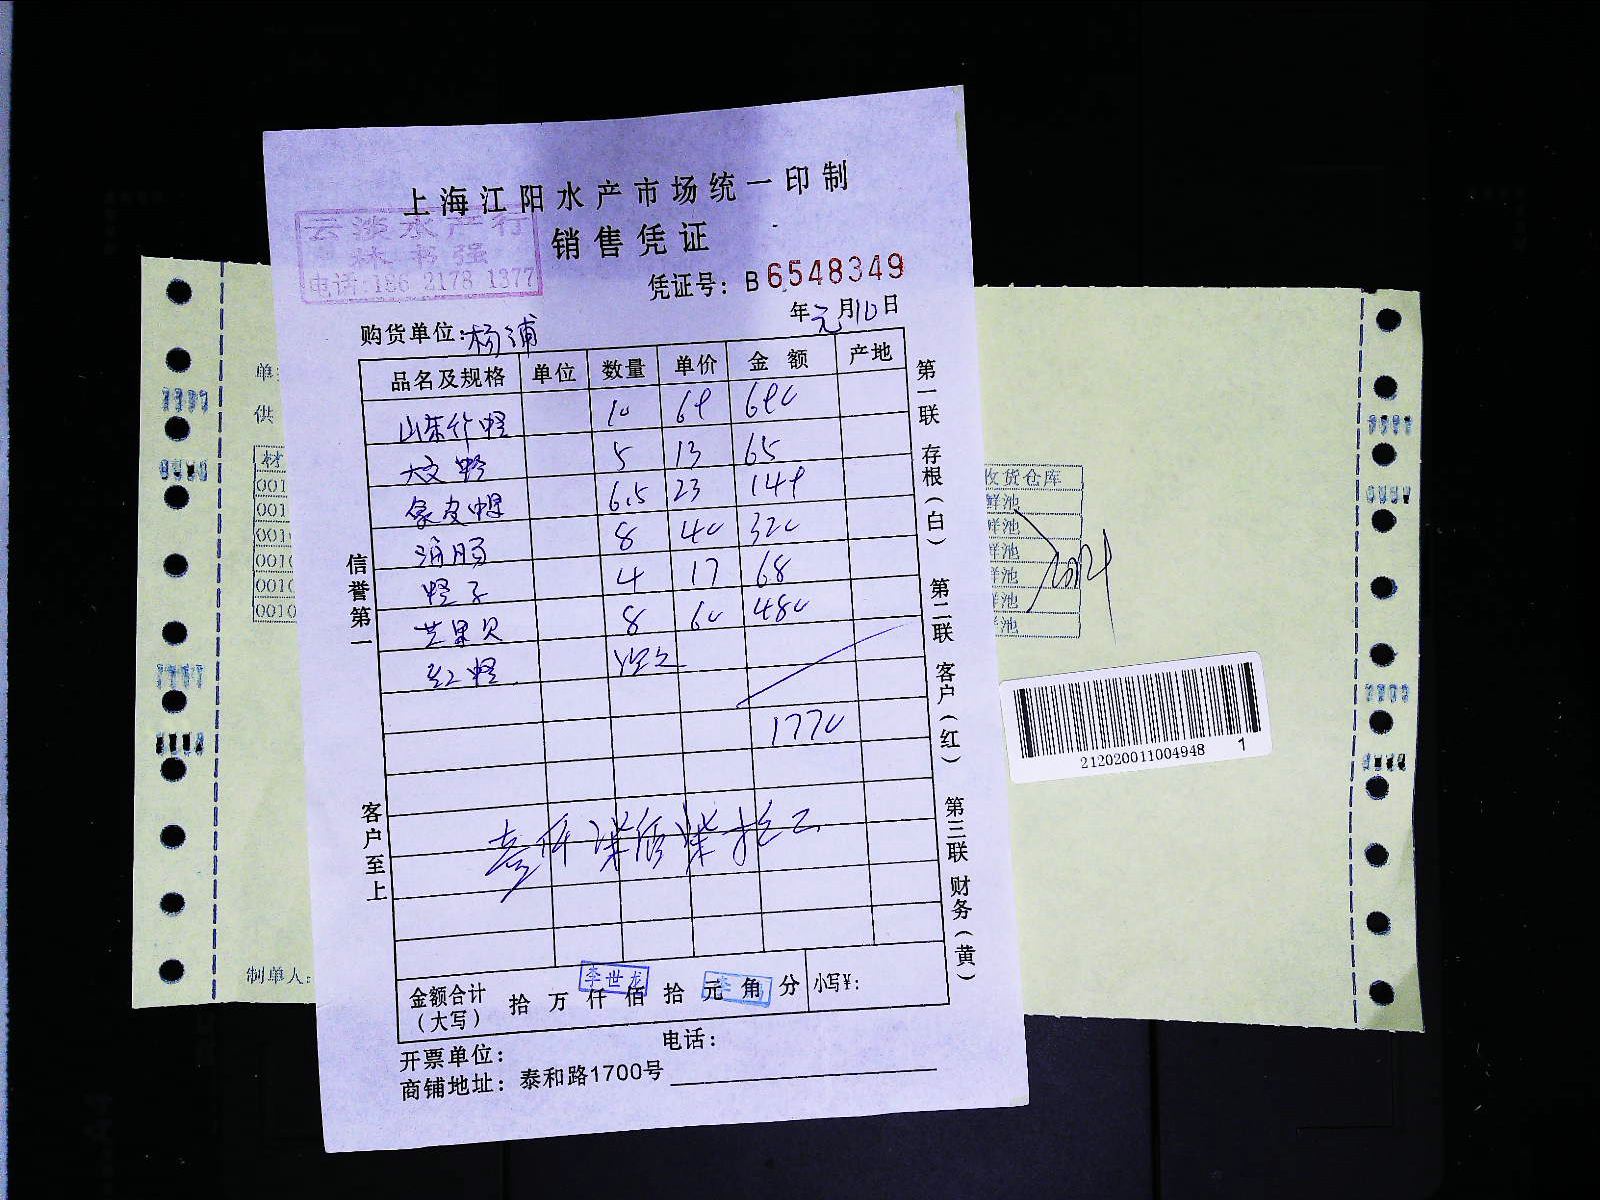 上海江阳水产市场统一印制
云淡水产行
林书强
电话:186 2178 1377
销售凭证
凭证号: B6548349
年元月10日
购货单位:杨浦
品名及规格 单位 数量 单价 金额 产地
山东竹蛏 10 69 690
5 13 65
象皮蚌 6.5 23 149
海肠 8 40 320
蛏子 4 17 68
芒果贝 8 60 480
红蛏
1770
金额合计(大写) 拾 万 仟 佰 拾 元 角 分 小写¥:
李世龙
开票单位: 电话:
商铺地址: 泰和路1700号
信誉第一
客户至上
第一联 存根(白) 第二联 客户(红) 第三联 财务(黄)
供
材
001
001
001
0010
0010
0010
制单人:
收货仓库
鲜池
鲜池
鲜池
鲜池
鲜池
鲜池
212020011004948 1